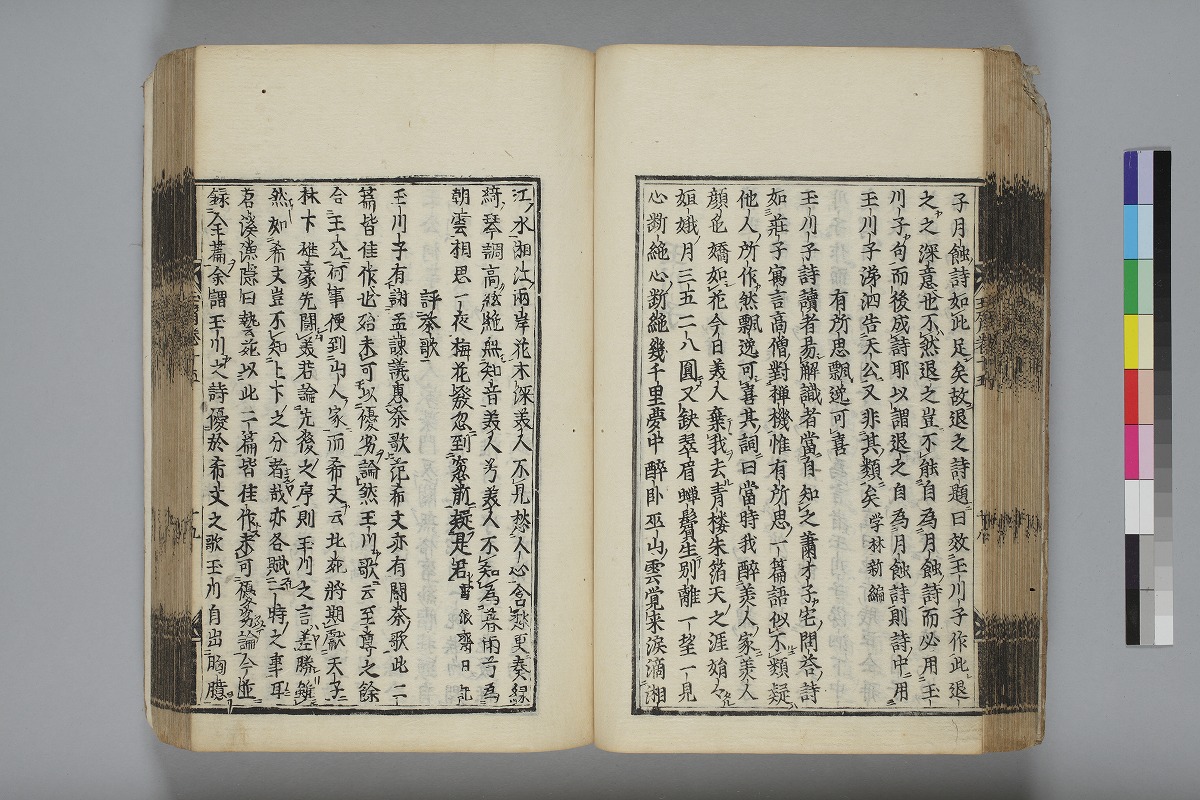 子月蝕詩如此足矣故退之詩題曰效玉川子作此退
之之深意也不然退之豈不能自為月蝕詩而必用玉
川子句而後成詩耶以謂退之自為月蝕詩則詩中用
玉川子涕泗告天公又非其類矣 学林新編
有所思飄逸可喜
玉川子詩讀者易解識者當自知之蕭才子宅問荅詩
如莊子寓言高僧對禪機惟有所思一篇語似不類疑
他人所作然飄逸可喜其詞曰當時我醉美人家美人
顔色嬌如花今日美人棄我去青楼朱箔天之涯娟々
姮娥月三五二八圓又缺翠眉蟬鬢生別離一望一見
心断絶心断絶幾千里夢中醉卧巫山雲覚来淚滴湘
玉屑卷十五
十八
江水湘江兩岸花木深美人不見愁人心含愁更奏緑
綺琴調高絃絶無知音美人兮美人不知為暮雨兮為
朝雲相思一夜梅花發忽到窓前疑是君 雪浪齋日記
評茶歌
玉川子有謝孟諫議惠茶歌范希文亦有闘茶歌此二
篇皆佳作也殆未可以優劣論然玉川歌云至尊之餘
合王公何事便到山人家而希文云北苑將期獻天子
林下雄豪先闘美若論先後之序則玉川之言差勝雖
然如希文豈不知上下之分者哉亦各賦一時之事耳
苕溪漁隱曰藝苑以此二篇皆佳作未可優劣論今並
録全篇余謂玉川之詩優於希文之歌玉川自出胸臆
玉屑卷十五
十九